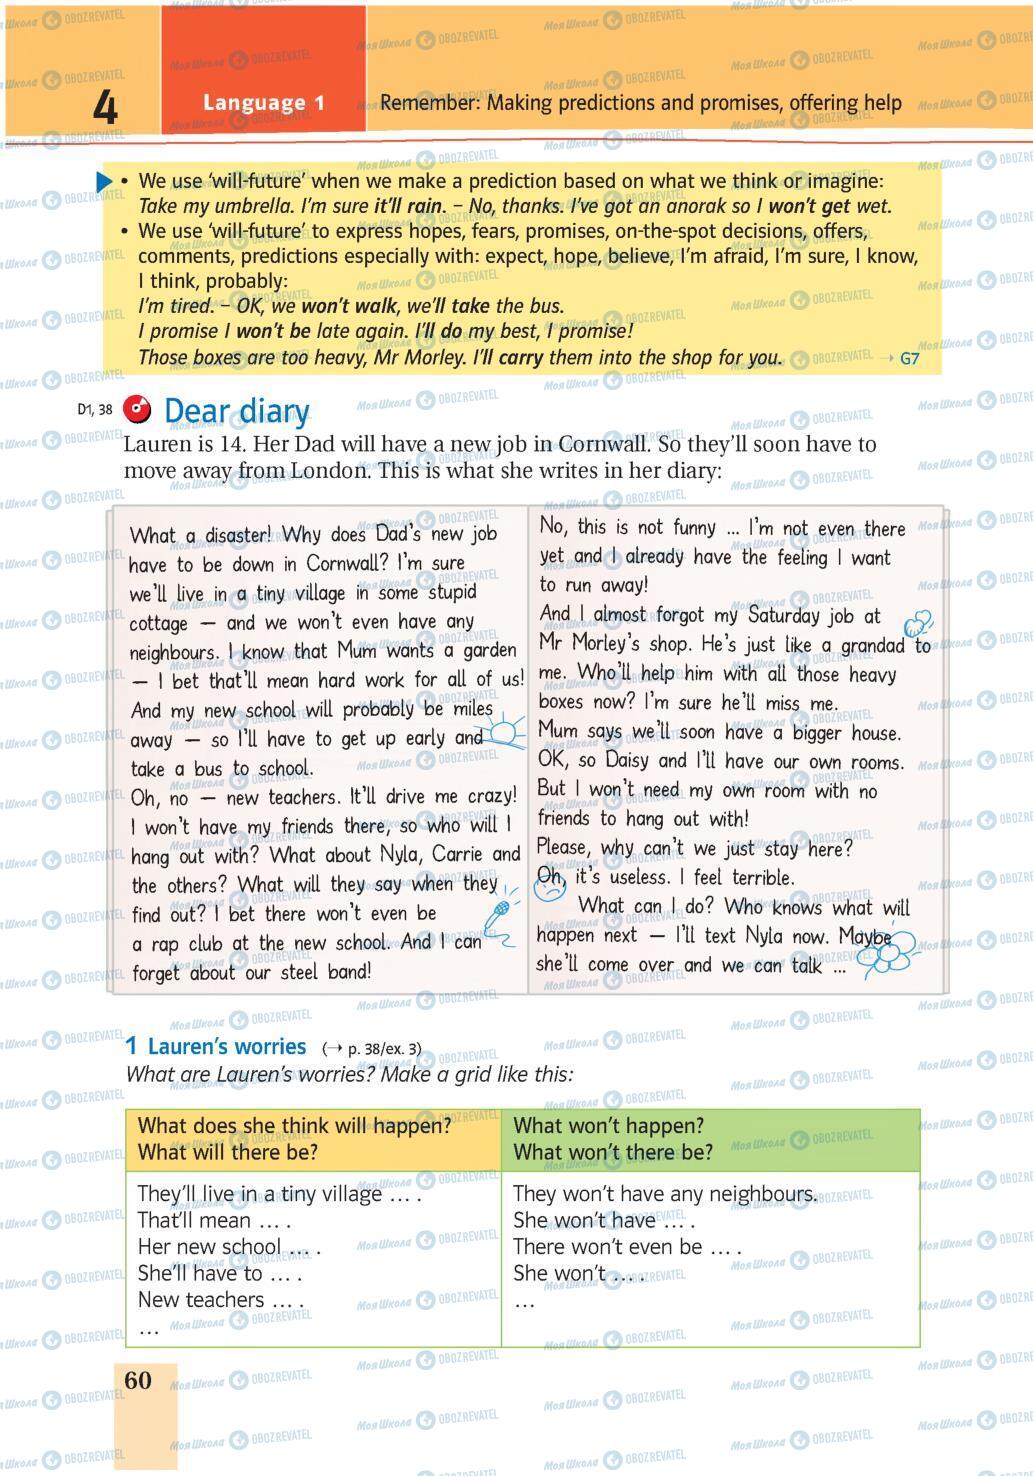 4
Language 1
Remember: Making predictions and promises, offering help
• We use ‘will-future’ when we make a prediction based on what we think or imagine:
Take my umbrella. I’m sure it’ll rain. – No, thanks. I’ve got an anorak so I won’t get wet.
• We use ‘will-future’ to express hopes, fears, promises, on-the-spot decisions, offers,
comments, predictions especially with: expect, hope, believe, I’m afraid, I’m sure, I know,
I think, probably:
I’m tired. – OK, we won’t walk, we’ll take the bus.
I promise I won’t be late again. I’ll do my best, I promise!
Those boxes are too heavy, Mr Morley. I’ll carry them into the shop for you.
→ G7
D1, 38
Dear diary
Lauren is 14. Her Dad will have a new job in Cornwall. So they’ll soon have to
move away from London. This is what she writes in her diary:
What a disaster! Why does Dad’s new job
have to be down in Cornwall? I’m sure
we’ll live in a tiny village in some stupid
cottage – and we won’t even have any
neighbours. I know that Mum wants a garden
– I bet that’ll mean hard work for all of us!
And my new school will probably be miles
away – so I’ll have to get up early and
take a bus to school.
Oh, no – new teachers. It’ll drive me crazy!
I won’t have my friends there, so who will I
hang out with? What about Nyla, Carrie and
the others? What will they say when they
find out? I bet there won’t even be
a rap club at the new school. And I can
forget about our steel band!
No, this is not funny ... I’m not even there
yet and I already have the feeling I want
to run away!
And I almost forgot my Saturday job at
Mr Morley’s shop. He’s just like a grandad to
me. Who’ll help him with all those heavy
boxes now? I’m sure he’ll miss me.
Mum says we’ll soon have a bigger house.
OK, so Daisy and I’ll have our own rooms.
But I won’t need my own room with no
friends to hang out with!
Please, why can’t we just stay here?
Oh, it’s useless. I feel terrible.
What can I do? Who knows what will
happen next – I’ll text Nyla now. Maybe
she’ll come over and we can talk ...
1 Lauren’s worries (→ p. 38/ex. 3)
What are Lauren’s worries? Make a grid like this:
What does she think will happen?
What will there be?
What won’t happen?
What won’t there be?
They’ll live in a tiny village ... .
That’ll mean ... .
Her new school ... .
She’ll have to ... .
New teachers ... .
...
They won’t have any neighbours.
She won’t have ... .
There won’t even be ... .
She won’t ... .
...
60
Моя Школа OBOZREVATEL